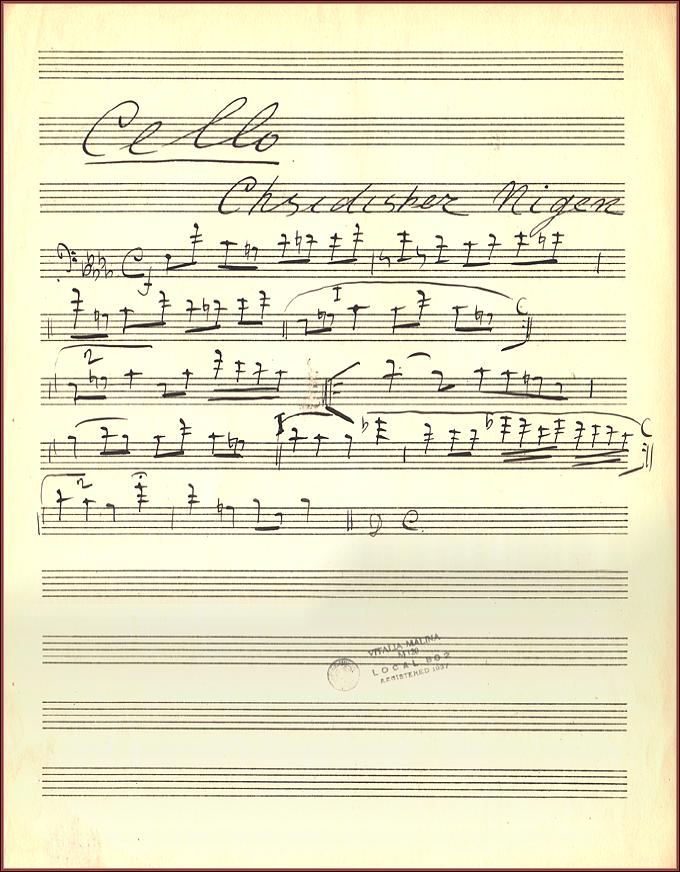 Cello
Chsidisher Nigen
f
I
2
I
2
D C.
VITALIA MALINA
M120
LOCAL 802
REGISTERED 1937